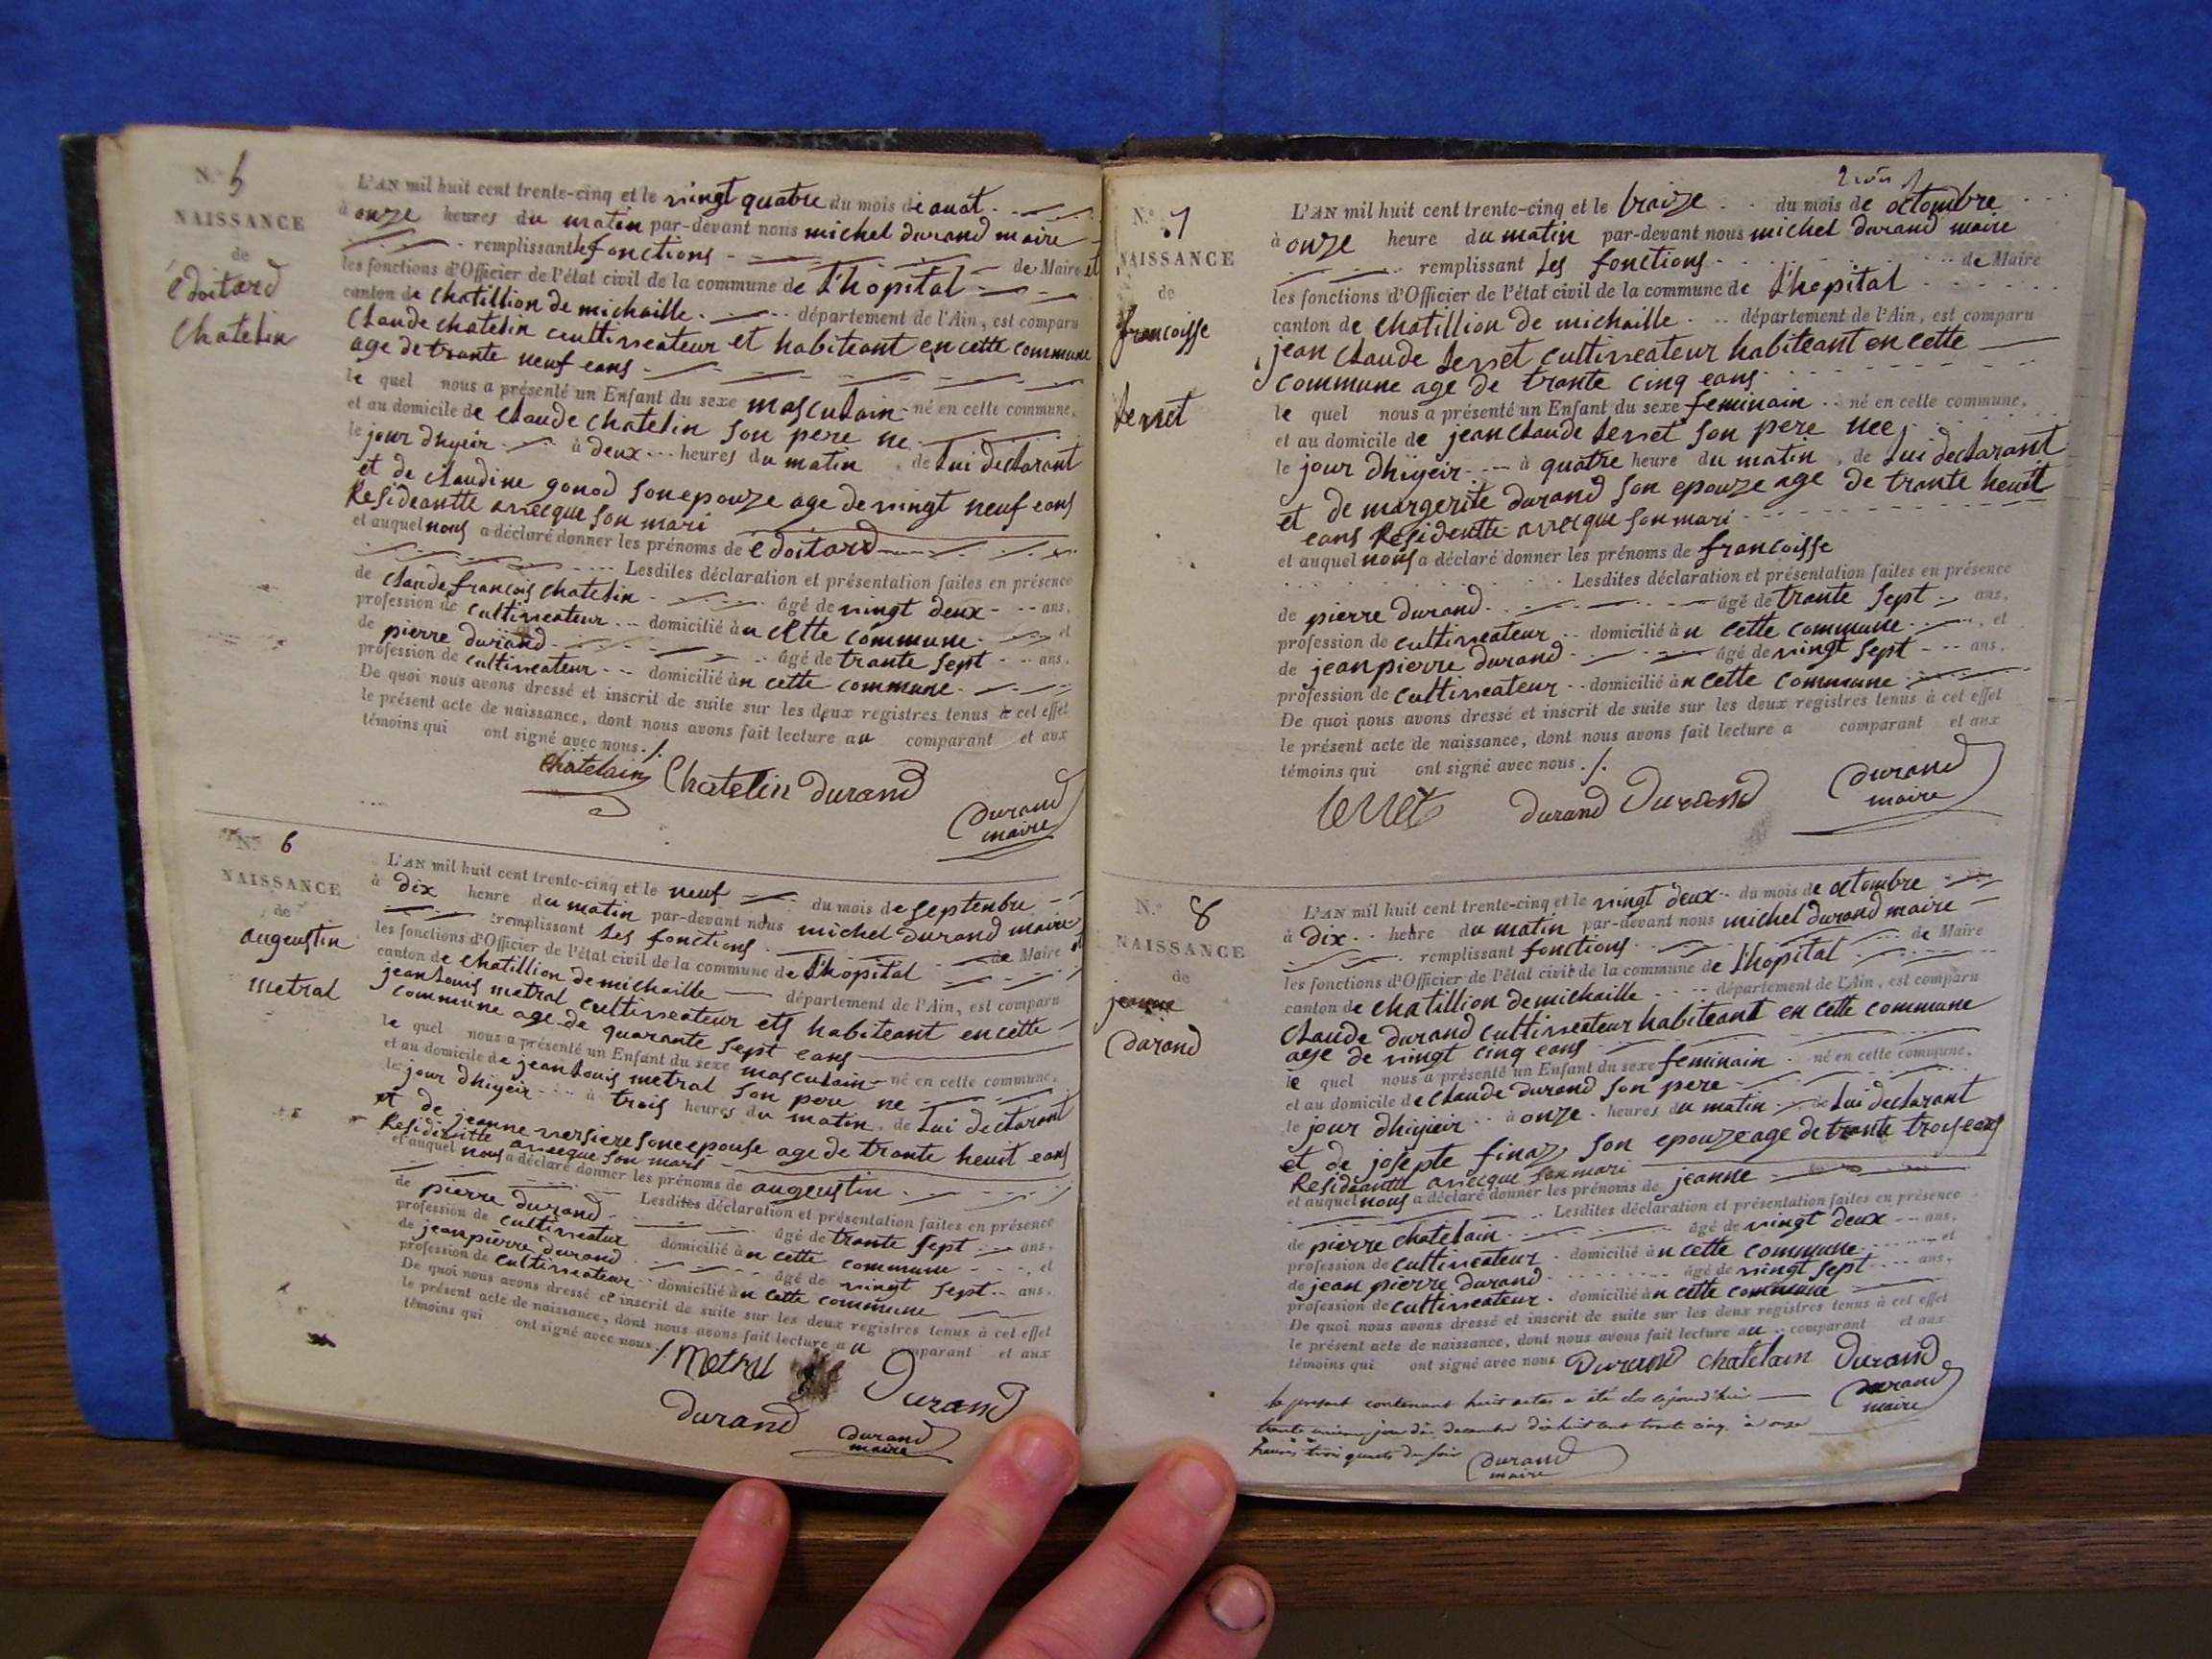 N.° 5
NAISSANCE
de
édoitard
Chatelin
L'AN mil huit cent trente-cinq et le vingt quatre du mois de auat
à onze heures du matin par-devant nous michel durand maire
remplissant les fonctions de Maire et
les fonctions d'Officier de l'état civil de la commune de L'hopital
canton de chatillion de michaille département de l'Ain, est comparu
Claude chatelin cultiveateur et habiteant en cette commune
age de trante neuf eans
le quel nous a présenté un Enfant du sexe masculain né en cette commune,
et au domicile de claude chatelin son pere ne
le jour dhyeir à deux heures du matin, de Lui declarant
et de claudine gonod son epouze age de vingt neuf eans
Resideantte avecque son mari
et auquel nous a déclaré donner les prénoms de edoitard
Lesdites déclaration et présentation faites en présence
de claude francois chatelin âgé de vingt deux ans,
profession de cultiveateur domicilié àn cette commune et
de pierre durand âgé de trante sept ans,
profession de cultiveateur domicilié àn cette commune
De quoi nous avons dressé et inscrit de suite sur les deux registres tenus à cet effet
le présent acte de naissance, dont nous avons fait lecture au comparant et aux
témoins qui ont signé avec nous ./.
Chatelain Chatelin durand
durand
maire
N.° 6
NAISSANCE
de
augeustin
metral
L'AN mil huit cent trente-cinq et le neuf du mois de septenbre
à dix heure du matin par-devant nous michel durand maire
remplissant les fonctions de Maire et
les fonctions d'Officier de l'état civil de la commune de L'hopital
canton de chatillion de michaille département de l'Ain, est comparu
jean Louis metral cultiveateur et habiteant en cette
commune age de quarante sept eans
le quel nous a présenté un Enfant du sexe masculain né en cette commune,
et au domicile de jean Louis metral son pere ne
le jour dhiyeir à trois heures du matin, de Lui declarant
et de jeanne versiere son epouse age de trante heuit eans
Residentte avecque son mari
et auquel nous a déclaré donner les prénoms de augeustin
Lesdites déclaration et présentation faites en présence
de pierre durand âgé de trante sept ans,
profession de cultiveatur domicilié àn cette commune, et
de jean pierre durand âgé de vingt sept ans,
profession de cultiveateur domicilié àn cette commune
De quoi nous avons dressé et inscrit de suite sur les deux registres tenus à cet effet
le présent acte de naissance, dont nous avons fait lecture au comparant et aux
témoins qui ont signé avec nous ./.
Durand
durand durand
maire
N.° 7
NAISSANCE
de
francoisse
Servet
L'AN mil huit cent trente-cinq et le traize du mois de octombre
à onze heure du matin par-devant nous michel durand maire
remplissant les fonctions de Maire
les fonctions d'Officier de l'état civil de la commune de L'hopital
canton de chatillion de michaille département de l'Ain, est comparu
jean claude servet cultiveateur habiteant en cette
commune age de trante cinq eans
le quel nous a présenté un Enfant du sexe feminain né en cette commune,
et au domicile de jean claude servet son pere nee
le jour dhiyeir à quatre heure du matin, de Lui declarant
et de margerite durand son epouze age de trante heuit
eans Residentte avecque son mari
et auquel nous a déclaré donner les prénoms de francoisse
Lesdites déclaration et présentation faites en présence
de pierre durand âgé de trante sept ans,
profession de cultiveateur domicilié àn cette commune, et
de jean pierre durand âgé de vingt sept ans,
profession de cultiveateur domicilié àn cette commune
De quoi nous avons dressé et inscrit de suite sur les deux registres tenus à cet effet
le présent acte de naissance, dont nous avons fait lecture a comparant et aux
témoins qui ont signé avec nous ./.
durand Durand durand
maire
N.° 8
NAISSANCE
de
jeanne
Durand
L'AN mil huit cent trente-cinq et le vingt deux du mois de octombre
à dix heure du matin par-devant nous michel durand maire
remplissant fonctions de Maire
les fonctions d'Officier de l'état civil de la commune de L'hopital
canton de chatillion de michaille département de l'Ain, est comparu
Claude durand cultiveateur habiteant en cette commune
age de vingt cinq eans
le quel nous a présenté un Enfant du sexe feminain né en cette commune,
et au domicile de claude durand son pere
le jour dhiyieir à onze heures du matin, de Lui declarant
et de josepte finaz son epouze age de trante trois eans
Resideantte avecque son mari
et auquel nous a déclaré donner les prénoms de jeanne
Lesdites déclaration et présentation faites en présence
de pierre chatelain âgé de vingt deux ans,
profession de cultiveateur domicilié àn cette commune et
de jean pierre durand âgé de vingt sept ans,
profession de cultiveateur domicilié àn cette commune
De quoi nous avons dressé et inscrit de suite sur les deux registres tenus à cet effet
le présent acte de naissance, dont nous avons fait lecture au comparant et aux
témoins qui ont signé avec nous Durand chatelain Durand
durand
maire
le present contenant huit actes a été clos aujourd'hui
trente unieme jour de decembre dix huit cent trente cinq, à onze
heures trois quarts du soir durand
maire